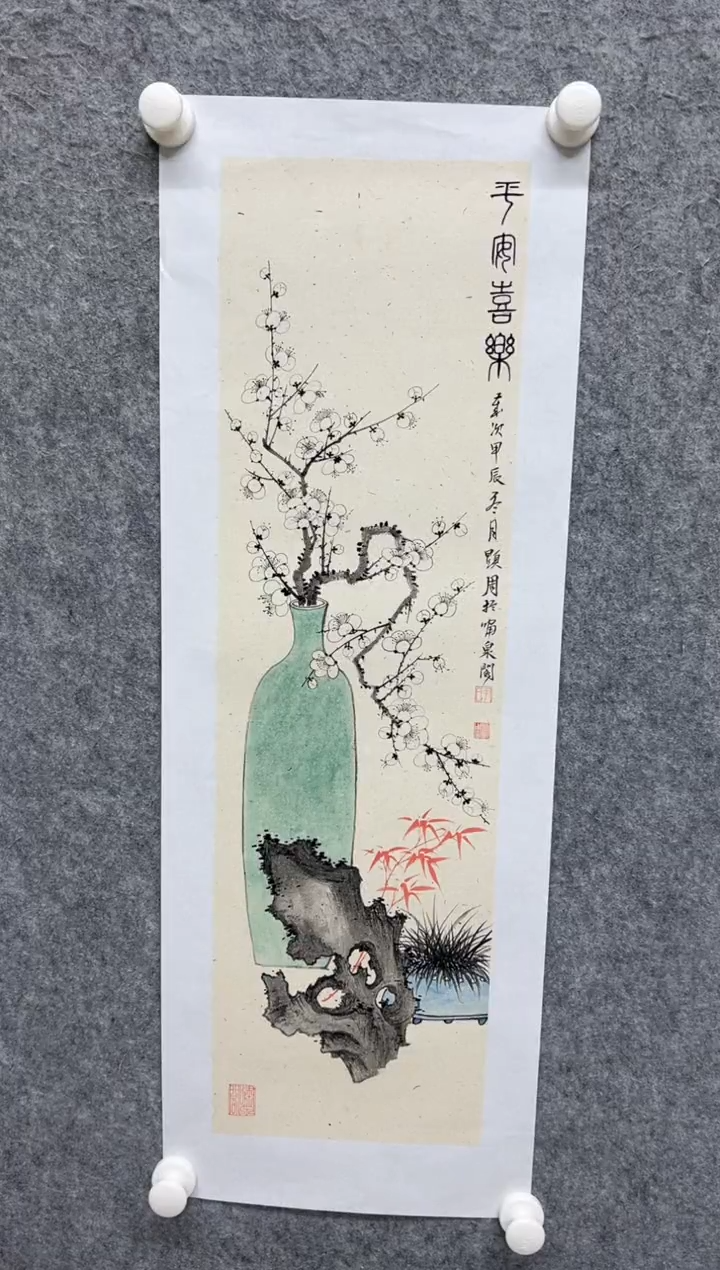 平安喜樂
歲次甲辰冬月顕周於嘯泉閣